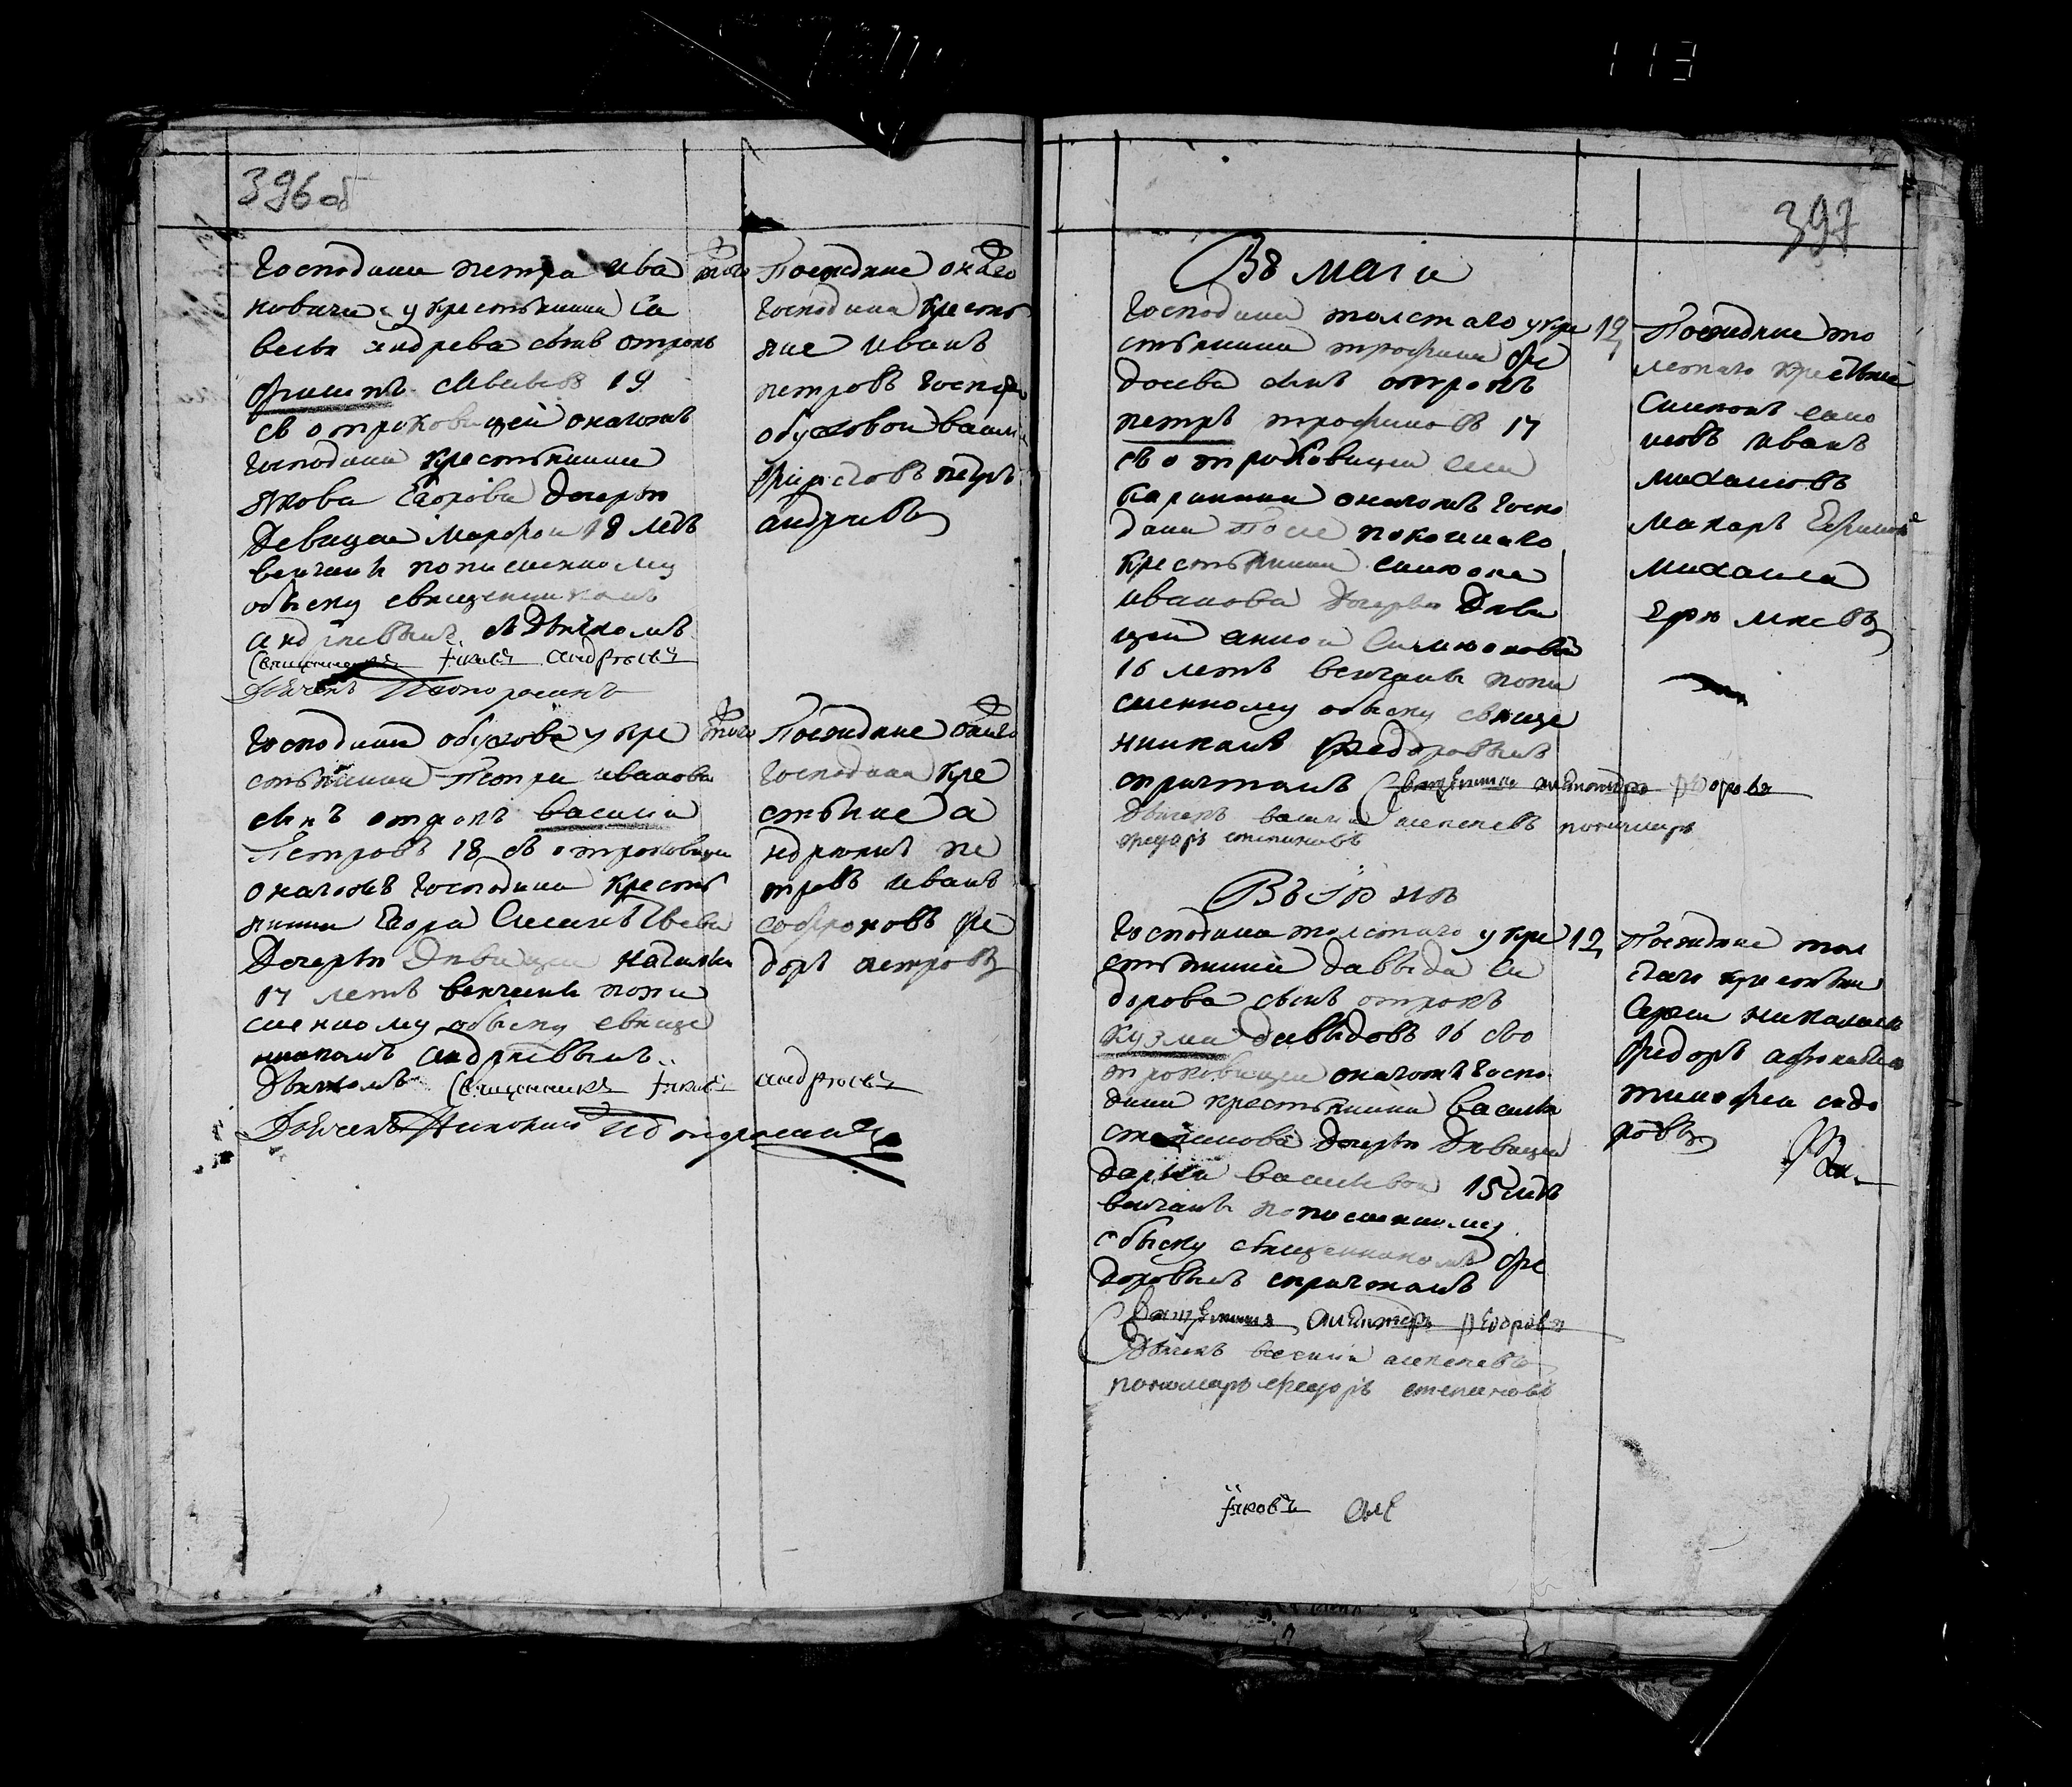 396об
Господина петра ива
новича у крестьянина са
велья андрева сынъ отрокъ
филипъ савельевъ 19
съ отроковицей онагожъ
господина крестьянина
якова Егорова дочерью
девицеи марфои 18 летъ
венчанъ пописменному
обыску священникомъ
андреевымъ съ дьячкомъ
священникъ Iаковъ андреевъ
Дьячекъ
того
Поезжане онаго
господина кресть
яне иванъ
петровъ господ
обуховой васили
петръ
андреевъ
Господина обухова у кре
стьянина Петра иванова
сынъ отрокъ василиі
Петровъ 18 съ отроковицеи
онагожъ господина кресть
янина Егора
дочерью девицеи наталья
17 летъ венчанъ попи
сменному обыску свяще
никомъ андреевымъ
дьячкомъ священникъ Iаковъ андреевъ
Дьячекъ
того
Поезжане онаго
господина кре
стьяне а
ндреянъ пе
тровъ иванъ
софроновъ фе
доръ петровъ
397
Въ маiи
господина толстаго у кре
стьянина трофима фе
досева сынъ отрокъ
петръ трофимовъ 17
съ отроковицеи
онагожъ госпо
дина после покоинаго
крестьянина симиона
иванова дочерью деви
цеи анной симионовой
16 летъ венчанъ попи
сменному обыску свяще
нникомъ федоровымъ
спричтомъ священникъ александръ федоровъ
дьячекъ василиі алексевъ пономарь
федоръ степановъ
12
Поезжане то
лстаго крестьяне
Симионъ симо
новъ иванъ
михаиловъ
макаръ Ефимовъ
михаила
еремеевъ
Въ Iюне
Господина толстаго у кре
стьянина давыда си
дорова сынъ отрокъ
кузма давыдовъ 16 сво
троковицеи онагожъ госпо
дина крестьянина василья
степанова дочерью девицеи
дарьи васильвои 15 летъ
венчанъ пописменному
обыску священникомъ фе
доровымъ спричтомъ
священникъ александръ федоровъ
дьячекъ василиі алексевъ
пономарь федоръ степановъ
12
Поезжане тол
стаго крестьяне
николаевъ
федоръ афонасев
тимофеи сидо
ровъ
Iаковъ але